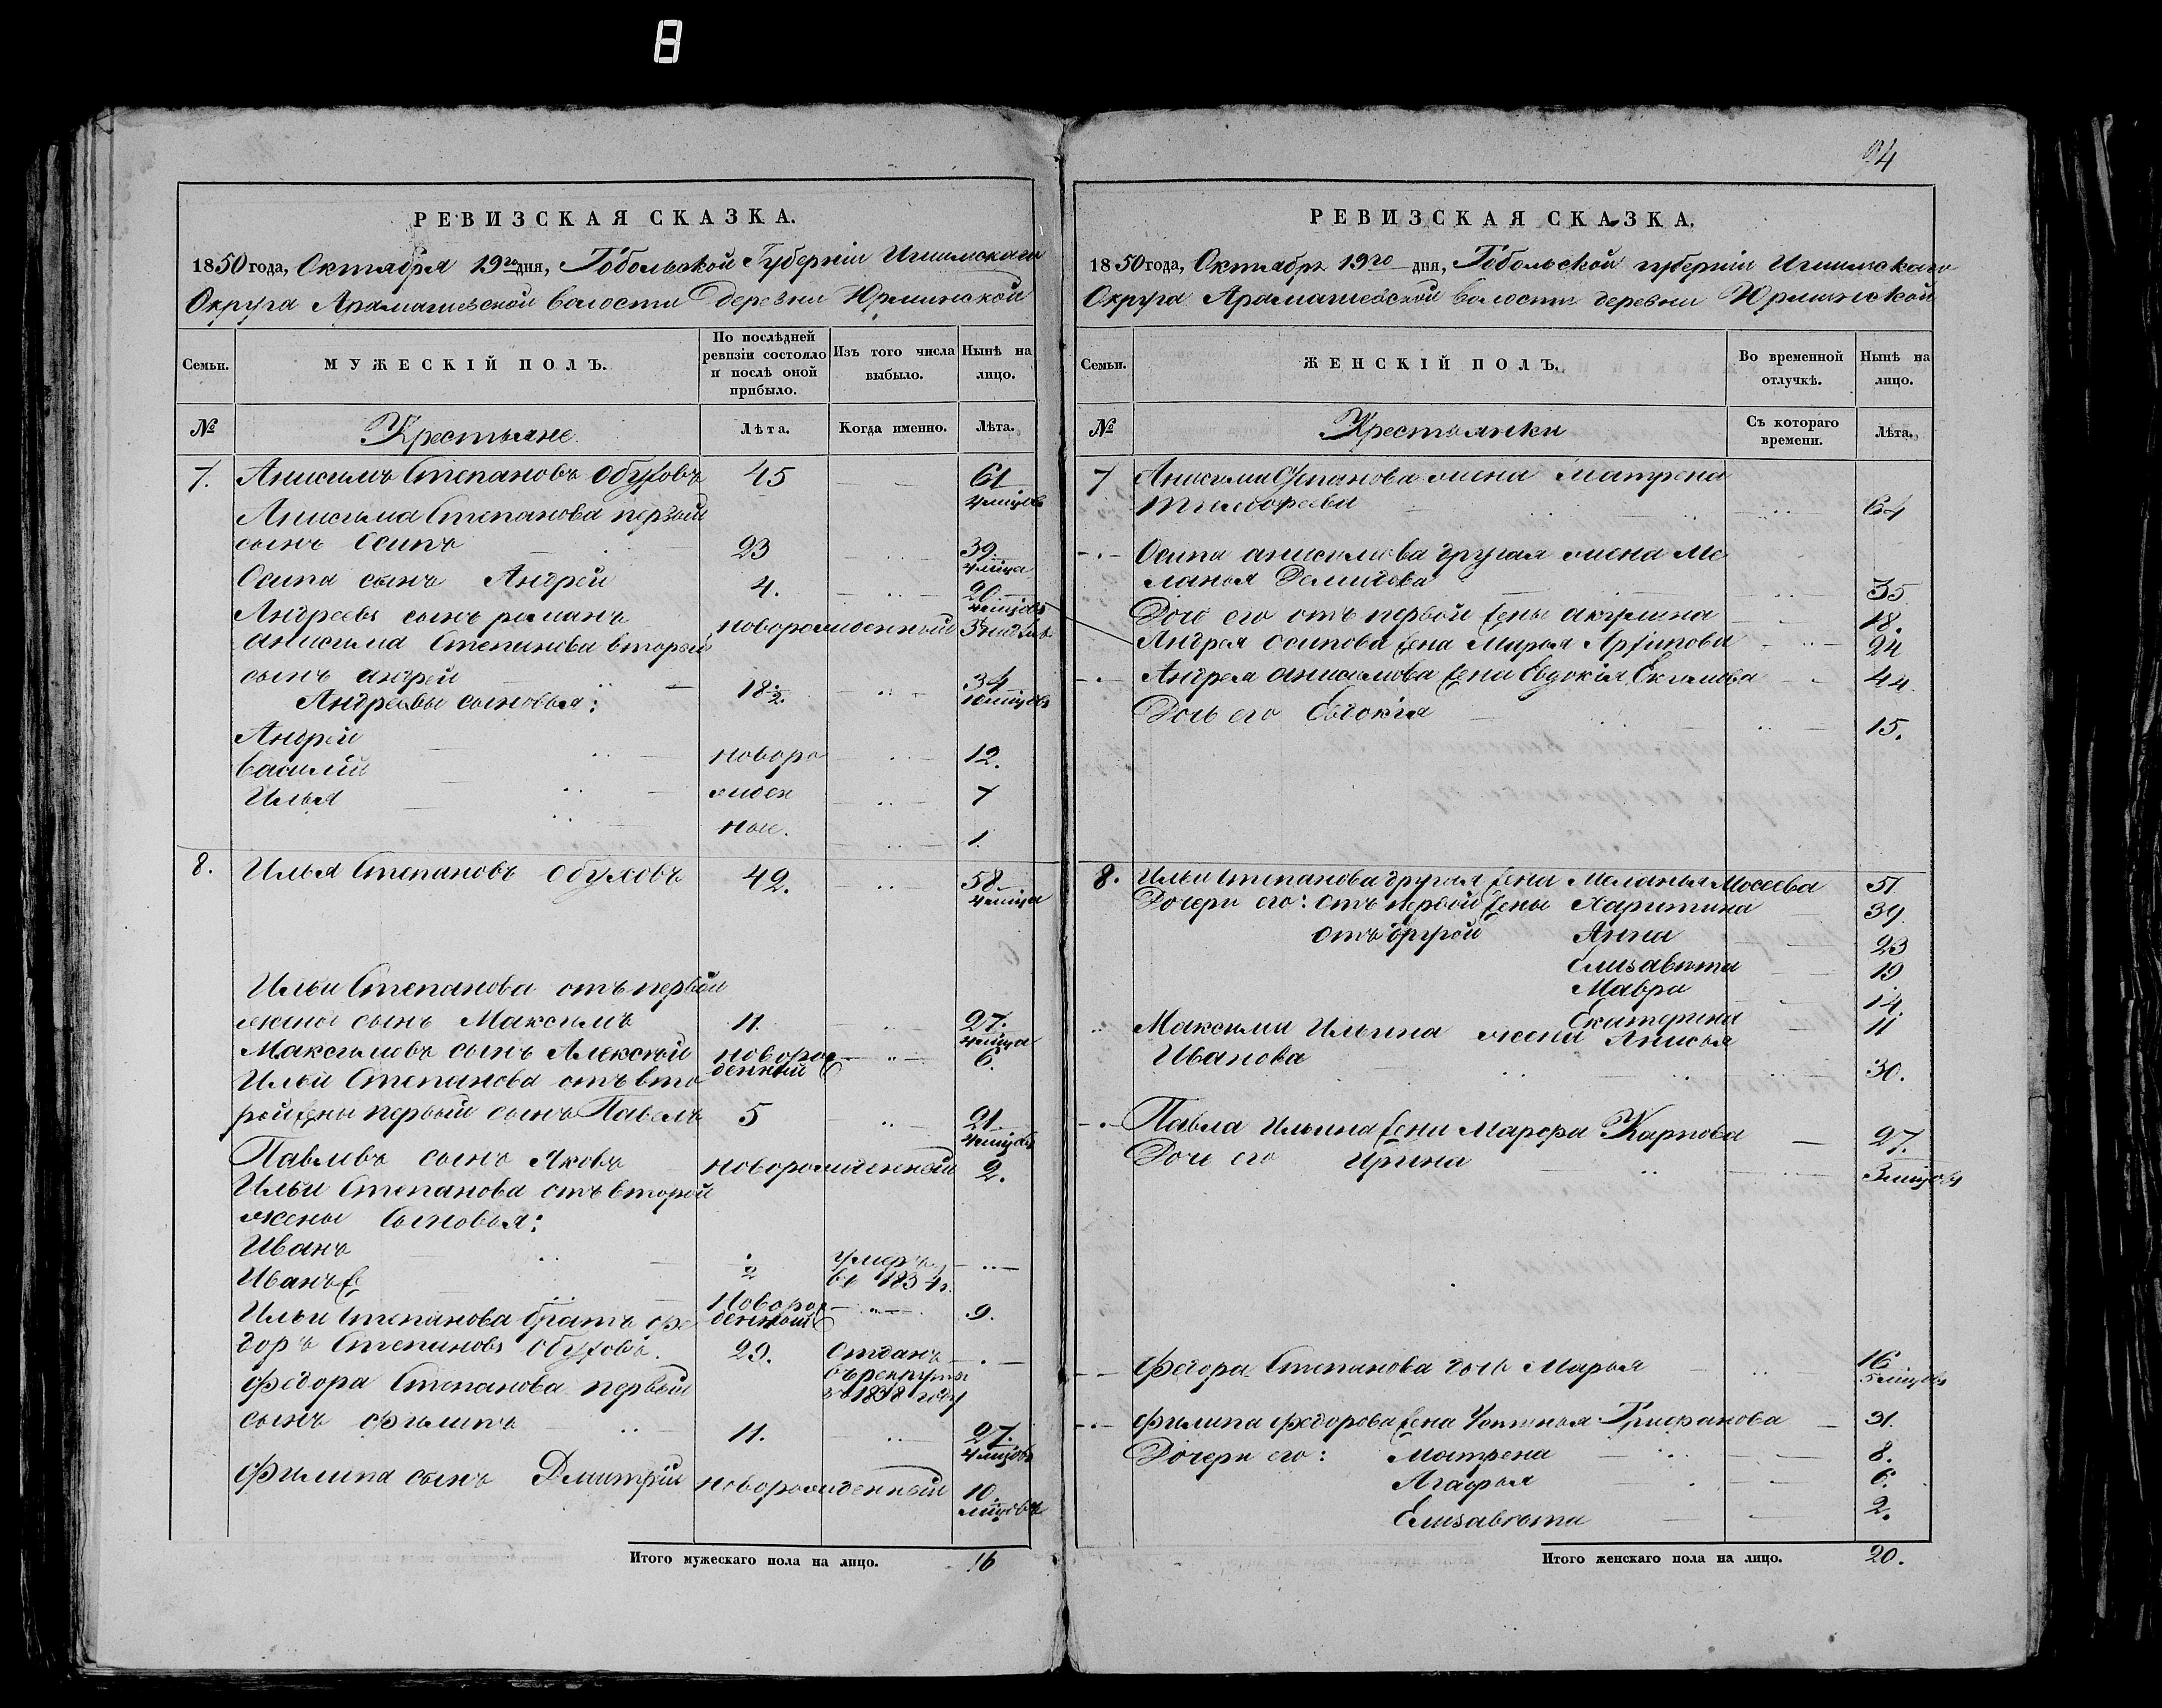 8
РЕВИЗСКАЯ СКАЗКА.
1850 года, Октября 19го дня, Тобольской Губерніи Ишимскаго
Округа Арамашевской волости деревни Юрминской
Семьи.
МУЖЕСКІЙ ПОЛЪ.
По послѣдней ревизіи состояло и послѣ оной прибыло.
Изъ того числа выбыло.
Нынѣ на лицо.
№
Крестьяне
Лѣта.
Когда именно.
Лѣта.
7. Анисимъ Степановъ Обуховъ 45 61
4 мцовъ
Анисима Степанова первый
сынъ Осипъ 23 39
4 мцца
Осипа сынъ Андрей 4. 20
Андреевъ сынъ романъ новорожденный
Анисима Степанова второй
сынъ андрей 18½. 34
10 мцовъ
Андреевы сыновья:
Андрей новоро 12.
василий жден 7
Илья ные. 1.
8. Илья Степановъ Обуховъ 42. 58
4 мцца
Ильи Степанова отъ первой
жены сынъ Максимъ 11. 27.
4 мцца
Максимовъ сынъ Алексѣй новорож 6.
денный
Ильи Степанова отъ вто
рой жены первый сынъ Павелъ 5 21
4 мцовъ
Павловъ сынъ Яковъ новорожденный 2.
Ильи Степанова отъ второй
жены сыновья:
Иванъ ½ умеръ
въ 1834 г.
Иванъ же Новорож 9.
денный
Ильи Степанова братъ фе
доръ Степановъ Обуховъ. 29. Отданъ
въ рекруты
въ 1838 году
Федора Степанова первый
сынъ Филипъ 11. 27.
4 мцовъ
Филипа сынъ Дмитрій новорожденный 10.
мцовъ
Итого мужескаго пола на лицо. 16
94
РЕВИЗСКАЯ СКАЗКА.
1850 года, Октября 19го дня, Тобольской губерніи Ишимскаго
Округа Арамашевской волости деревни Юрминской
Семьи.
ЖЕНСКІЙ ПОЛЪ.
Во временной отлучкѣ.
Нынѣ на лицо.
№
Крестьянки
Съ котораго времени.
Лѣта.
7 Анисима Степанова жена Матрена
Тимофеева 64
Осипа анисимова другая жена Ме
ланья Демидова 35
Дочь его отъ первой жены акулина 18.
Андрея осипова жена Марья Архипова 24
Андрея анисимова жена Евдокія Екимова 44.
Дочь его Евдокія 15.
8. Ильи степанова другая жена Меланья Мосеева 51
Дочери его: отъ первой жены Харитина 39
отъ другой Анна 23
Елизавѣта 19
Мавра 14.
Екатерина 11
Максима Ильина жена Анисья
Иванова 30.
Павла Ильина жена Марфа Карпова 27.
Дочь его Ирина 3 мцовъ
Федора Степанова дочь Марья 16
5 мцовъ
Филипа Федорова жена Устинья Трифанова 31.
Дочери его: Матрена 8.
Агафья 6.
Елизавѣта 2.
Итого женскаго пола на лицо. 20.